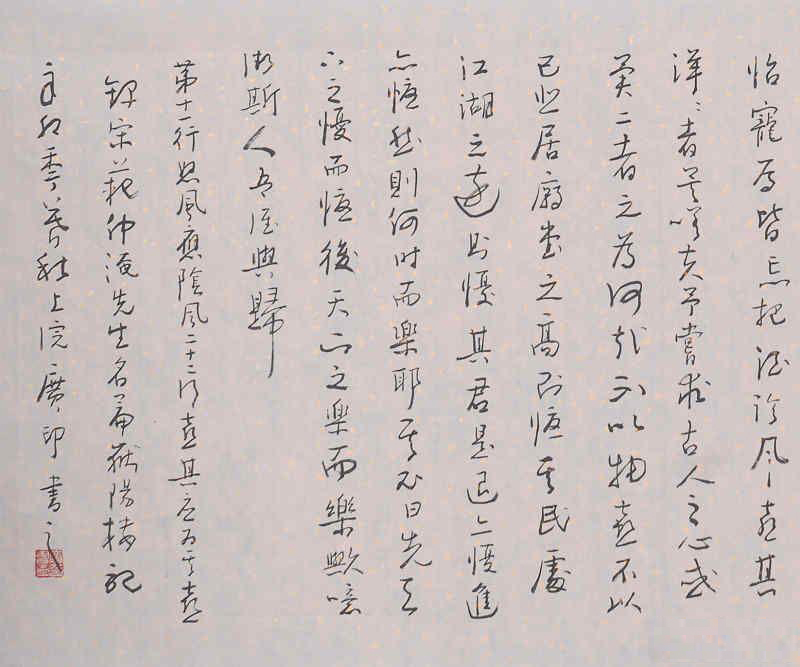 怡寵辱皆忘把酒臨風喜其
洋洋者矣嗟夫予嘗求古人之心或
異二者之為何哉不以物喜不以
己悲居廟堂之高則憂其民處
江湖之遠則憂其君是退亦憂進
亦憂然則何時而樂耶其必曰先天
下之憂而憂後天下之樂而樂歟噫
微斯人吾誰與歸
第十一行怒風應陰風二十二行喜其應為其喜
録宋范仲淹先生名篇嶽陽樓記
辛卯秊暮秋上浣廣印書之